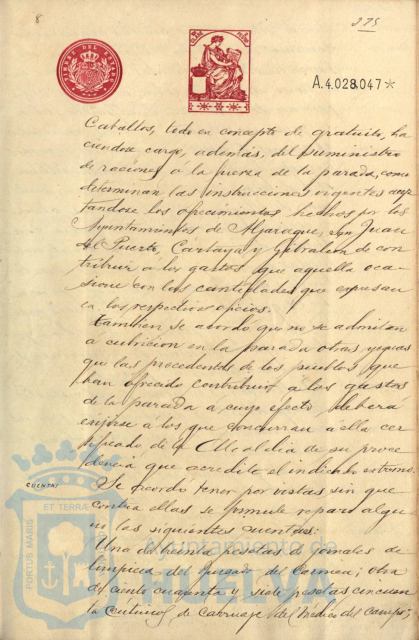 8
375
TIMBRE DEL ESTADO
A.4.028.047*
Caballos, todo en concepto de gratuito, ha
ciendose cargo, además, del suministro
de raciones á la fuerza de la parada, como
determinan las instrucciones vigentes acep
tandose los ofrecimientos hechos por los
Ayuntamientos de Aljaraque, San Juan
del Puerto, Cartaya y Gibraleon de con
tribuir á los gastos que aquella oca
sione con las cantidades que expresan
en los respectivos oficios.
Tambien se acordó que no se admitan
á cubricion en la parada otras yeguas
que las procedentes de los pueblos que
han ofrecido contribuir á los gastos
de la parada á cuyo efecto deberá
exijirse á los que concurran a ella cer
tificado de la Alcaldia de su proce
dencia que acredite el indicado extremo.
CUENTAS
Se acordó tener por vistas sin que
contra ellas se formule reparo algu
no las siguientes cuentas:
Una de treinta pesetas de jornales de
limpieza del Juzgado del Carmen; otra
de ciento cincuenta y siete pesetas cincuen
ta centimos de Carruaje del Medico del Campo;
PORTUS MARIS
ET TERRAE
Ayuntamiento de
HUELVA